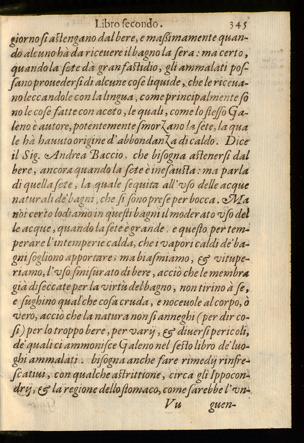 Libro secondo. 345
giorno si astengano dal bere, e massimamente quan-
do alcuno hà da riceuere il bagno la sera: ma certo,
quando la sete dà gran fastidio, gli ammalati pos-
sano prouedersi di alcune cose liquide, che le riceua-
no leccandole con la lingua, come principalmente sò
no le cose fatte con aceto, le quali, come lo stesso Ga-
leno è autore, potentemente smorzano la sete, la qua
le hà hauuto origine d'abbondanza di caldo. Dice
il Sig. Andrea Baccio, che bisogna astenersi dal
bere, ancora quando la sete è inesausta: ma parla
di quella sete, la quale sequita all'vso delle acque
naturali de' bagni, che si sono prese per bocca. Ma
noi certo lodiamo in questi bagni il moderato vso del
le acque, quando la sete è grande: e questo per tem-
perare l'intemperie calda, che i vapori caldi de' ba-
gni sogliono apportare: ma biasmiamo, & vitupe-
riamo, l'vso smisurato di bere, acciò che le membra
già diseccate per la virtù del bagno, non tirino à se,
e sughino qualche cosa cruda, e noceuole al corpo, ò
vero, acciò che la natura non si anneghi (per dir co-
si) per lo troppo bere, per varij, & diuersi pericoli,
de' quali ci ammonisce Galeno nel sesto libro de' luo-
ghi ammalati. bisogna anche fare rimedij rinfre-
scatiui, con qualche astrittione, circa gli Ippocon-
drij, & la regione dello stomaco, come sarebbe l'vn-
Vu guen-